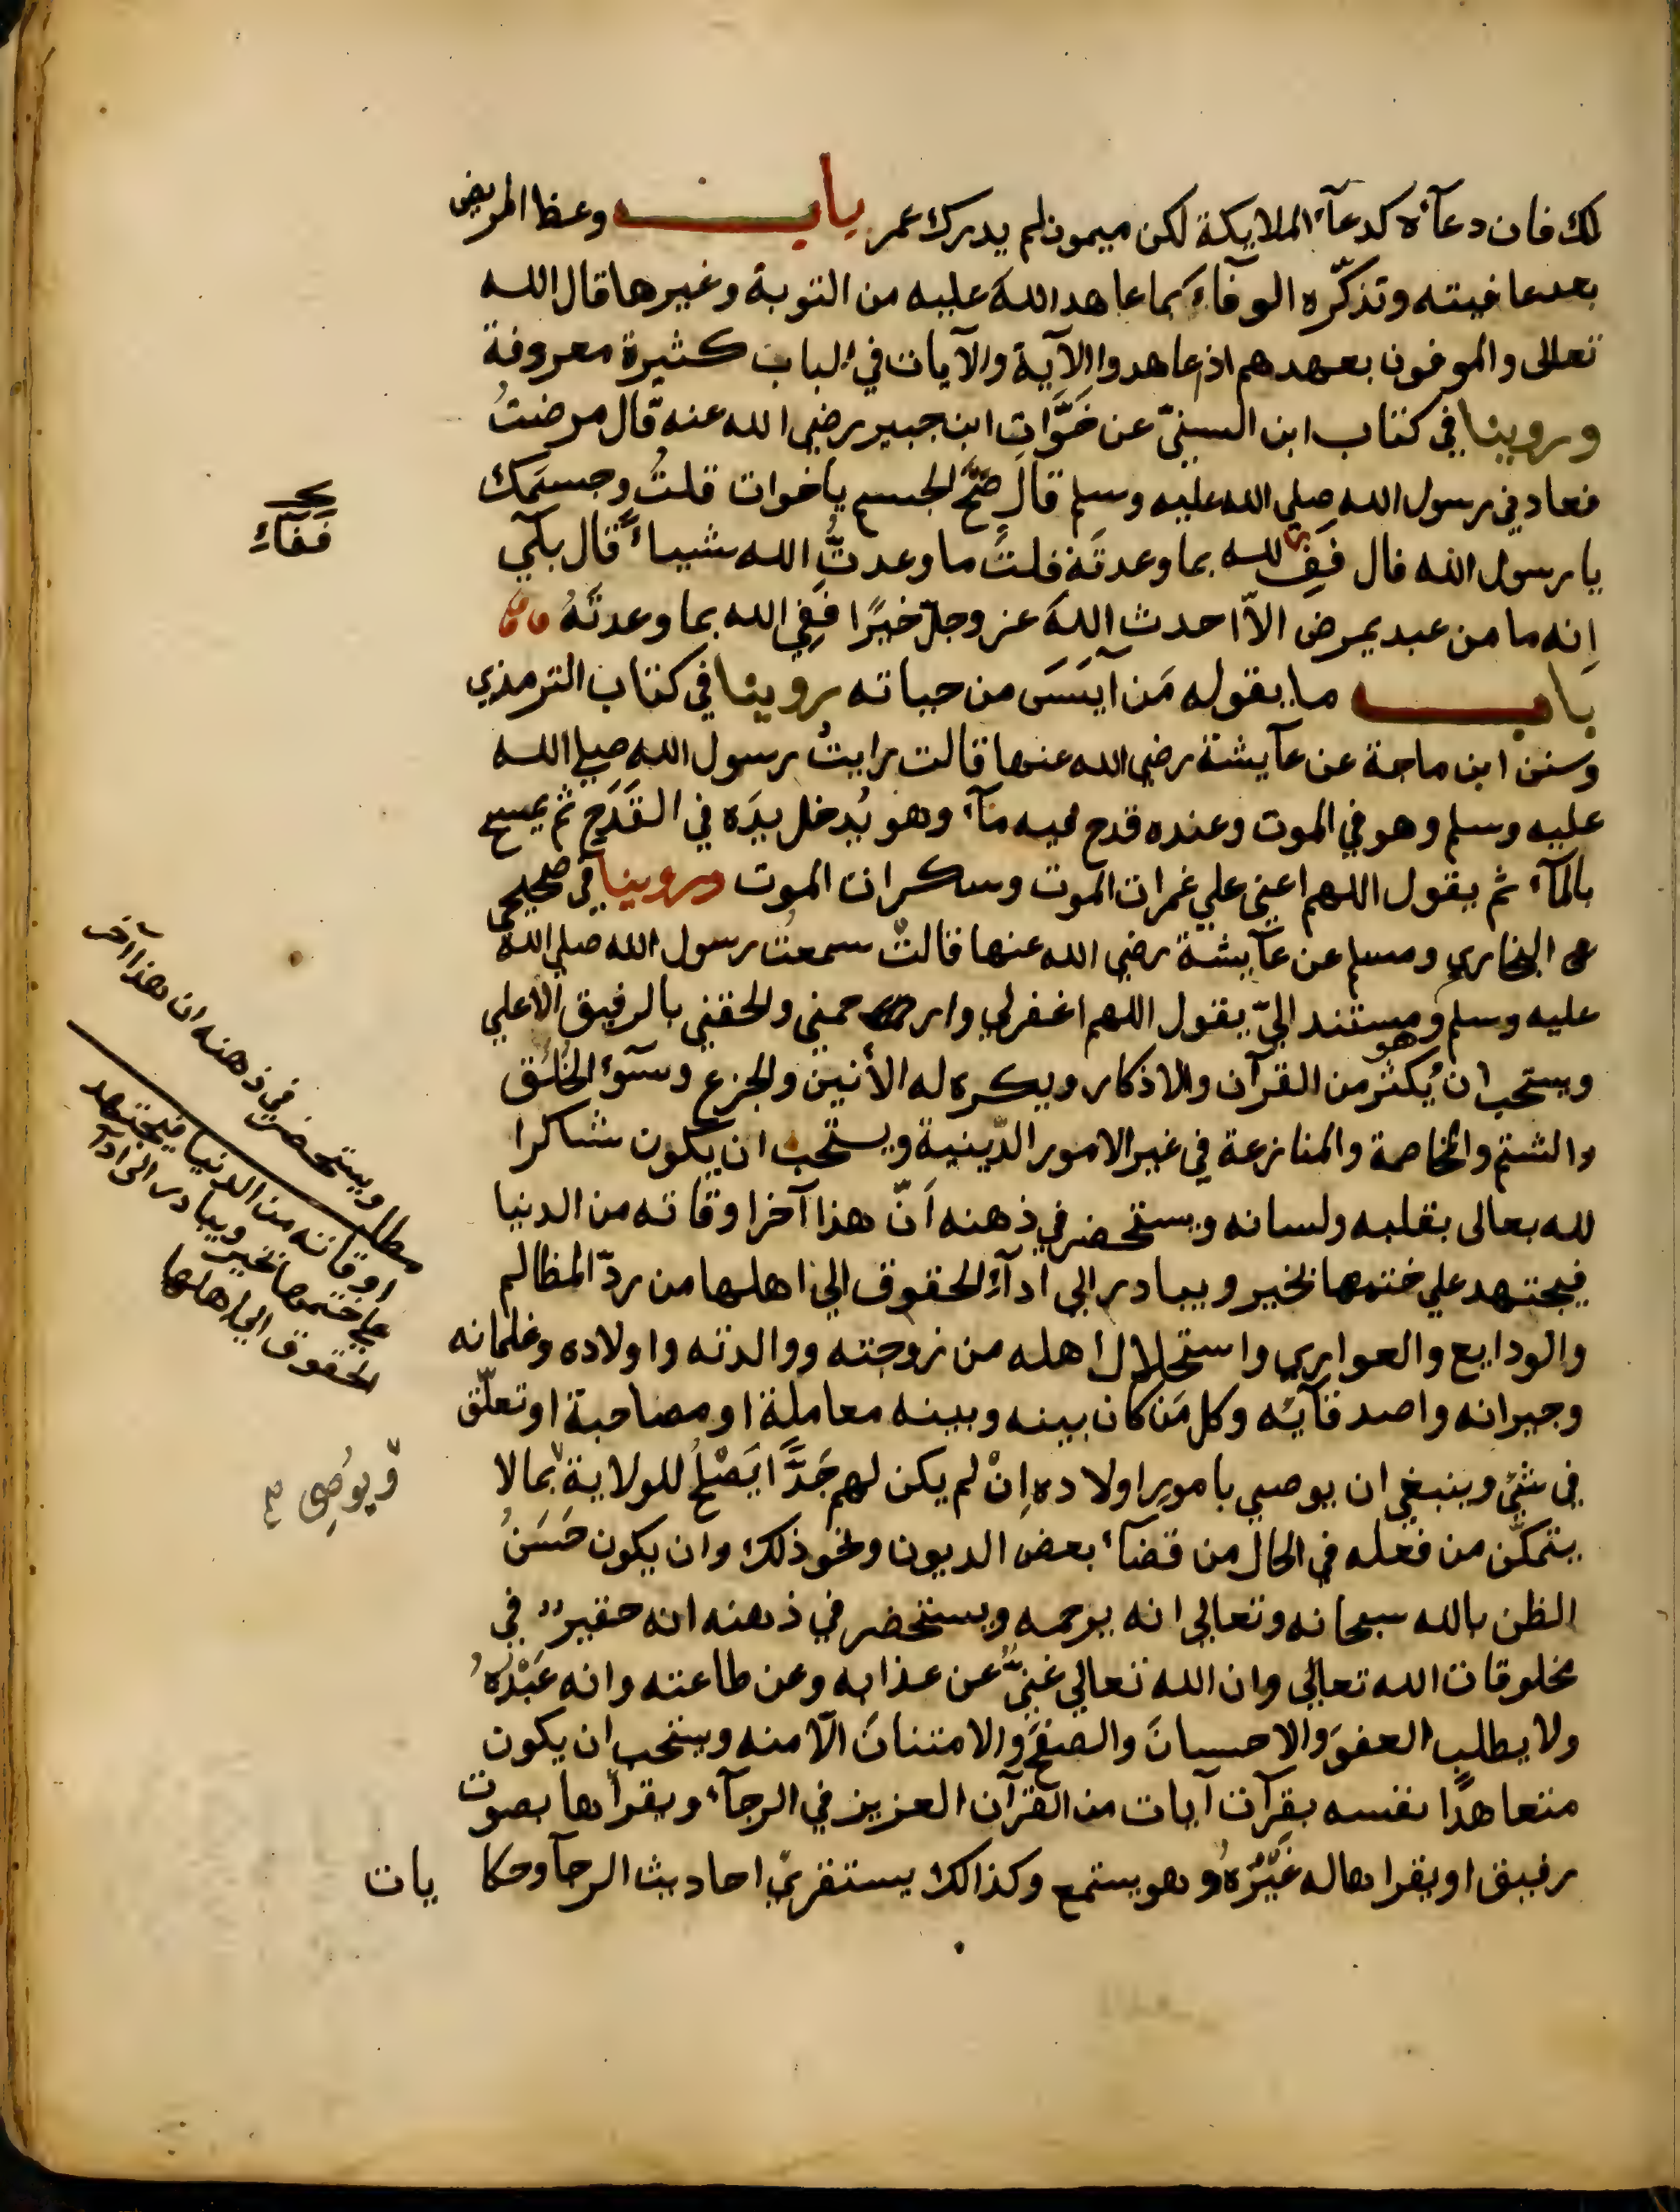 لك فان دعآءه كدعآء الملايكة لكن ميمون لم يدرك عمر باب وعظ المريض
بعد عافيته وتذكّره الوفآء بما عاهد اللهَ عليه من التوبة وغيرها قال الله
تعالى والموفون بعهدهم اذ عاهدوا الآية والآيات في الباب كثيرة معروفة
وروينا في كتاب ابن السنيّ عن خَوَّات ابن جبير رضي الله عنه قال مرضتُ
فعادني رسول الله صلي الله عليه وسلم قال صَحَّ الجسم ياخوات قلتُ وجسمَك
يا رسول الله قال فَفِ لله بما وعدتَه قلتُ ما وعدتُّ الله شيياءً قال بلَي
اِنه ما من عبد يمرض الاّ احدث اللهَ عز وجلّ خيرًا فَفِي الله بما وعدتَهُ
باب ما يقوله مَن اَيَسَ من حياته روينا في كتاب الترمذي
وسنن ابن ماجة عن عآيشة رضي الله عنها قالت رايتُ رسول الله صلي الله
عليه وسلم وهو في الموت وعنده قدح فيه مآء وهو يُدخل يدَه في القَدَح ثم يمسح
بالمآء ثم يقول اللهم اعني علي غمرات الموت وسكرات الموت وروينا في صحيحي
البخاري ومسلم عن عآيشة رضي الله عنها قالتْ سمعتُ رسول الله صلي الله
عليه وسلم وهو مستند اليّ يقول اللهم اغفرلي وارحمني والحقني بالرفيق الأعلي
ويستحب ان يُكثر من القرآن والاذكار ويكره له الأنين والجزع وسوٓء الخُلُق
والشتم والمخاصمة والمنازعة في غير الامور الدّينية ويستحب ان يكون شاكرا
لله تعالى بقلبه ولسانه ويستحضر في ذهنه اَنّ هذا آخر اوقاته من الدنيا
فيجتهد علي ختمها بخير ويبادر الي ادآءِ الحقوق الي اهلها من ردّ المظالم
والودايع والعواري واستحلال اهله من زوجته ووالدته واولاده وغلمانه
وجيرانه واصدقآيّه وكل مَن كان بينه وبينه معاملة او مصاحبة او تعلّق
في شئ وينبغي ان يوصي بامور اولاده اِنْ لم يكن لهم جَدًّا يَصْلحُ للولاية بمالا
يتمكّن من فعله في الحال من قضآء بعض الديون ونحو ذلك وان يكون حَسَنُ
الظن بالله سبحانه وتعالي انه يرحمه ويستحضر في ذهنه انه حقير في
مخلوقات الله تعالي وان الله تعالي غنيٌّ عن عذابه وعن طاعته وانه عَبْدُهُ
ولا يطلب العفوَ والاحسانَ والصفحَ والامتنانَ الّا منه ويستحب ان يكون
متعاهدًا نفسه بقرآت آيات من القرآن العزيز في الرجآء ويقرأها بصوت
رقيق او يقراها له غَيْرُهُ وهو يستمع وكذالك يستقرئ احاديث الرجآ وحكايات
فَفَآءِ
مطا ويستحضر في ذهنه ان هذا آخر
اوقاته من الدنيا فيجتهد
علي ختمها بخير ويبادر الى ادآ
الحقوق الي اهلها
ويُوصِي صح